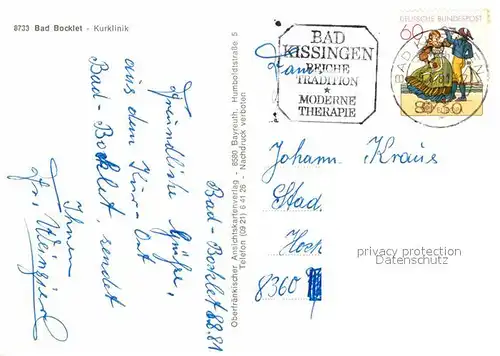 8733 Bad Bocklet - Kurklinik
Bad-Bocklet 8.8.81
Freundliche Grüße,
aus dem Kur-Ort
Bad-Bocklet, sendet
Ihnen
Oberfränkischer Ansichtskartenverlag - 8580 Bayreuth, Humboldtstraße 5
Telefon (09 21) 6 41 26 - Nachdruck verboten
BAD
KISSINGEN
REICHE
TRADITION
★
MODERNE
THERAPIE
DEUTSCHE BUNDESPOST
60
BAD
80+30
Johann Kraus
8360
privacy protection
Datenschutz